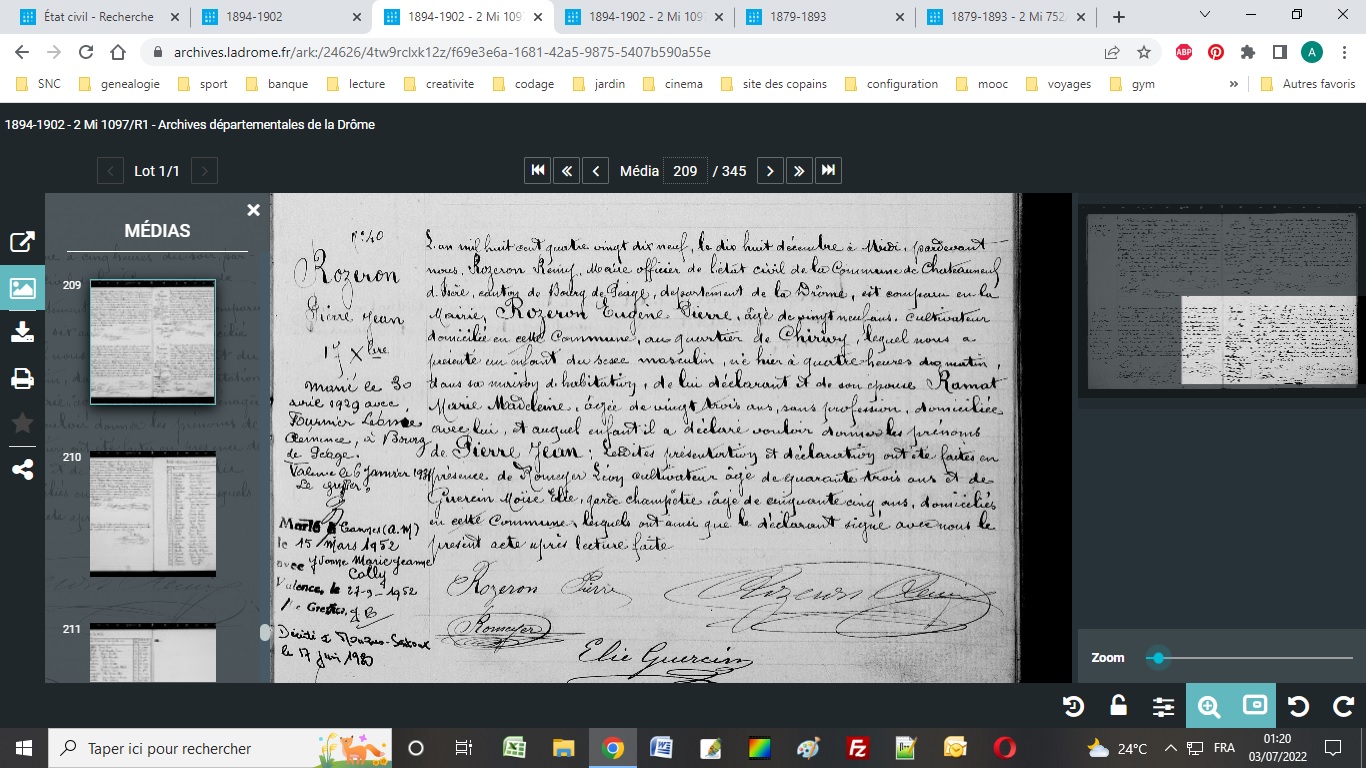 État civil - Recherche
1894-1902
1894-1902 - 2 Mi 109
1894-1902 - 2 Mi 109
1879-1893
1879-1893 - 2 Mi 752/
archives.ladrome.fr/ark:/24626/4tw9rclxk12z/f69e3e6a-1681-42a5-9875-5407b590a55e
ABP
A
SNC
genealogie
sport
banque
lecture
creativite
codage
jardin
cinema
site des copains
configuration
mooc
voyages
gym
»
Autres favoris
1894-1902 - 2 Mi 1097/R1 - Archives départementales de la Drôme
Lot 1/1
Média 209 / 345
MÉDIAS
209
210
211
N° 40
Rozeron
Pierre Jean
17 Xbre
marié le 30
avril 1929 avec
Fournier Léonie
Clemence, à Bourg
de Péage.
Valence le 6 Janvier
Le greffier
Marié à Cannes (A.M)
le 15 Mars 1952
avec Yvonne Marie Jeanne
Colly
Valence, le 27-9-1952
Le Greffier,
Décédé à
le 17 juin 1980
L'an mil huit cent quatre vingt dix neuf, le dix huit décembre à Midi, pardevant
nous, Rozeron Remy, Maire officier de l'état civil de la Commune de Chateauneuf
d'Isère, canton de Bourg de Péage, departement de la Drôme, est comparu en la
Mairie, Rozeron Eugène Pierre, âgé de vingt neuf ans, cultivateur
domicilié en cette Commune, au quartier de lequel nous a
présenté un enfant du sexe masculin, né hier à quatre heures du matin,
dans sa maison de habitation, de lui déclarant et de son épouse Ramat
Marie Madeleine, âgée de vingt trois ans, sans profession, domiciliée
avec lui, et auquel enfant il a déclaré vouloir donner les prénoms
de Pierre Jean; Lesdites présentation et déclaration ont été faites en
présence de Romeyer Léon cultivateur âgé de quarante trois ans et de
Guercin Moïse Elie, garde champêtre, âgé de cinquante cinq ans, domiciliés
en cette Commune, lesquels ont ainsi que le déclarant signé avec nous le
présent acte après lecture faite
Rozeron Pierre
Rozeron Remy
Romeyer
Elie Guercin
Zoom
Taper ici pour rechercher
24°C
FRA
01:20
03/07/2022